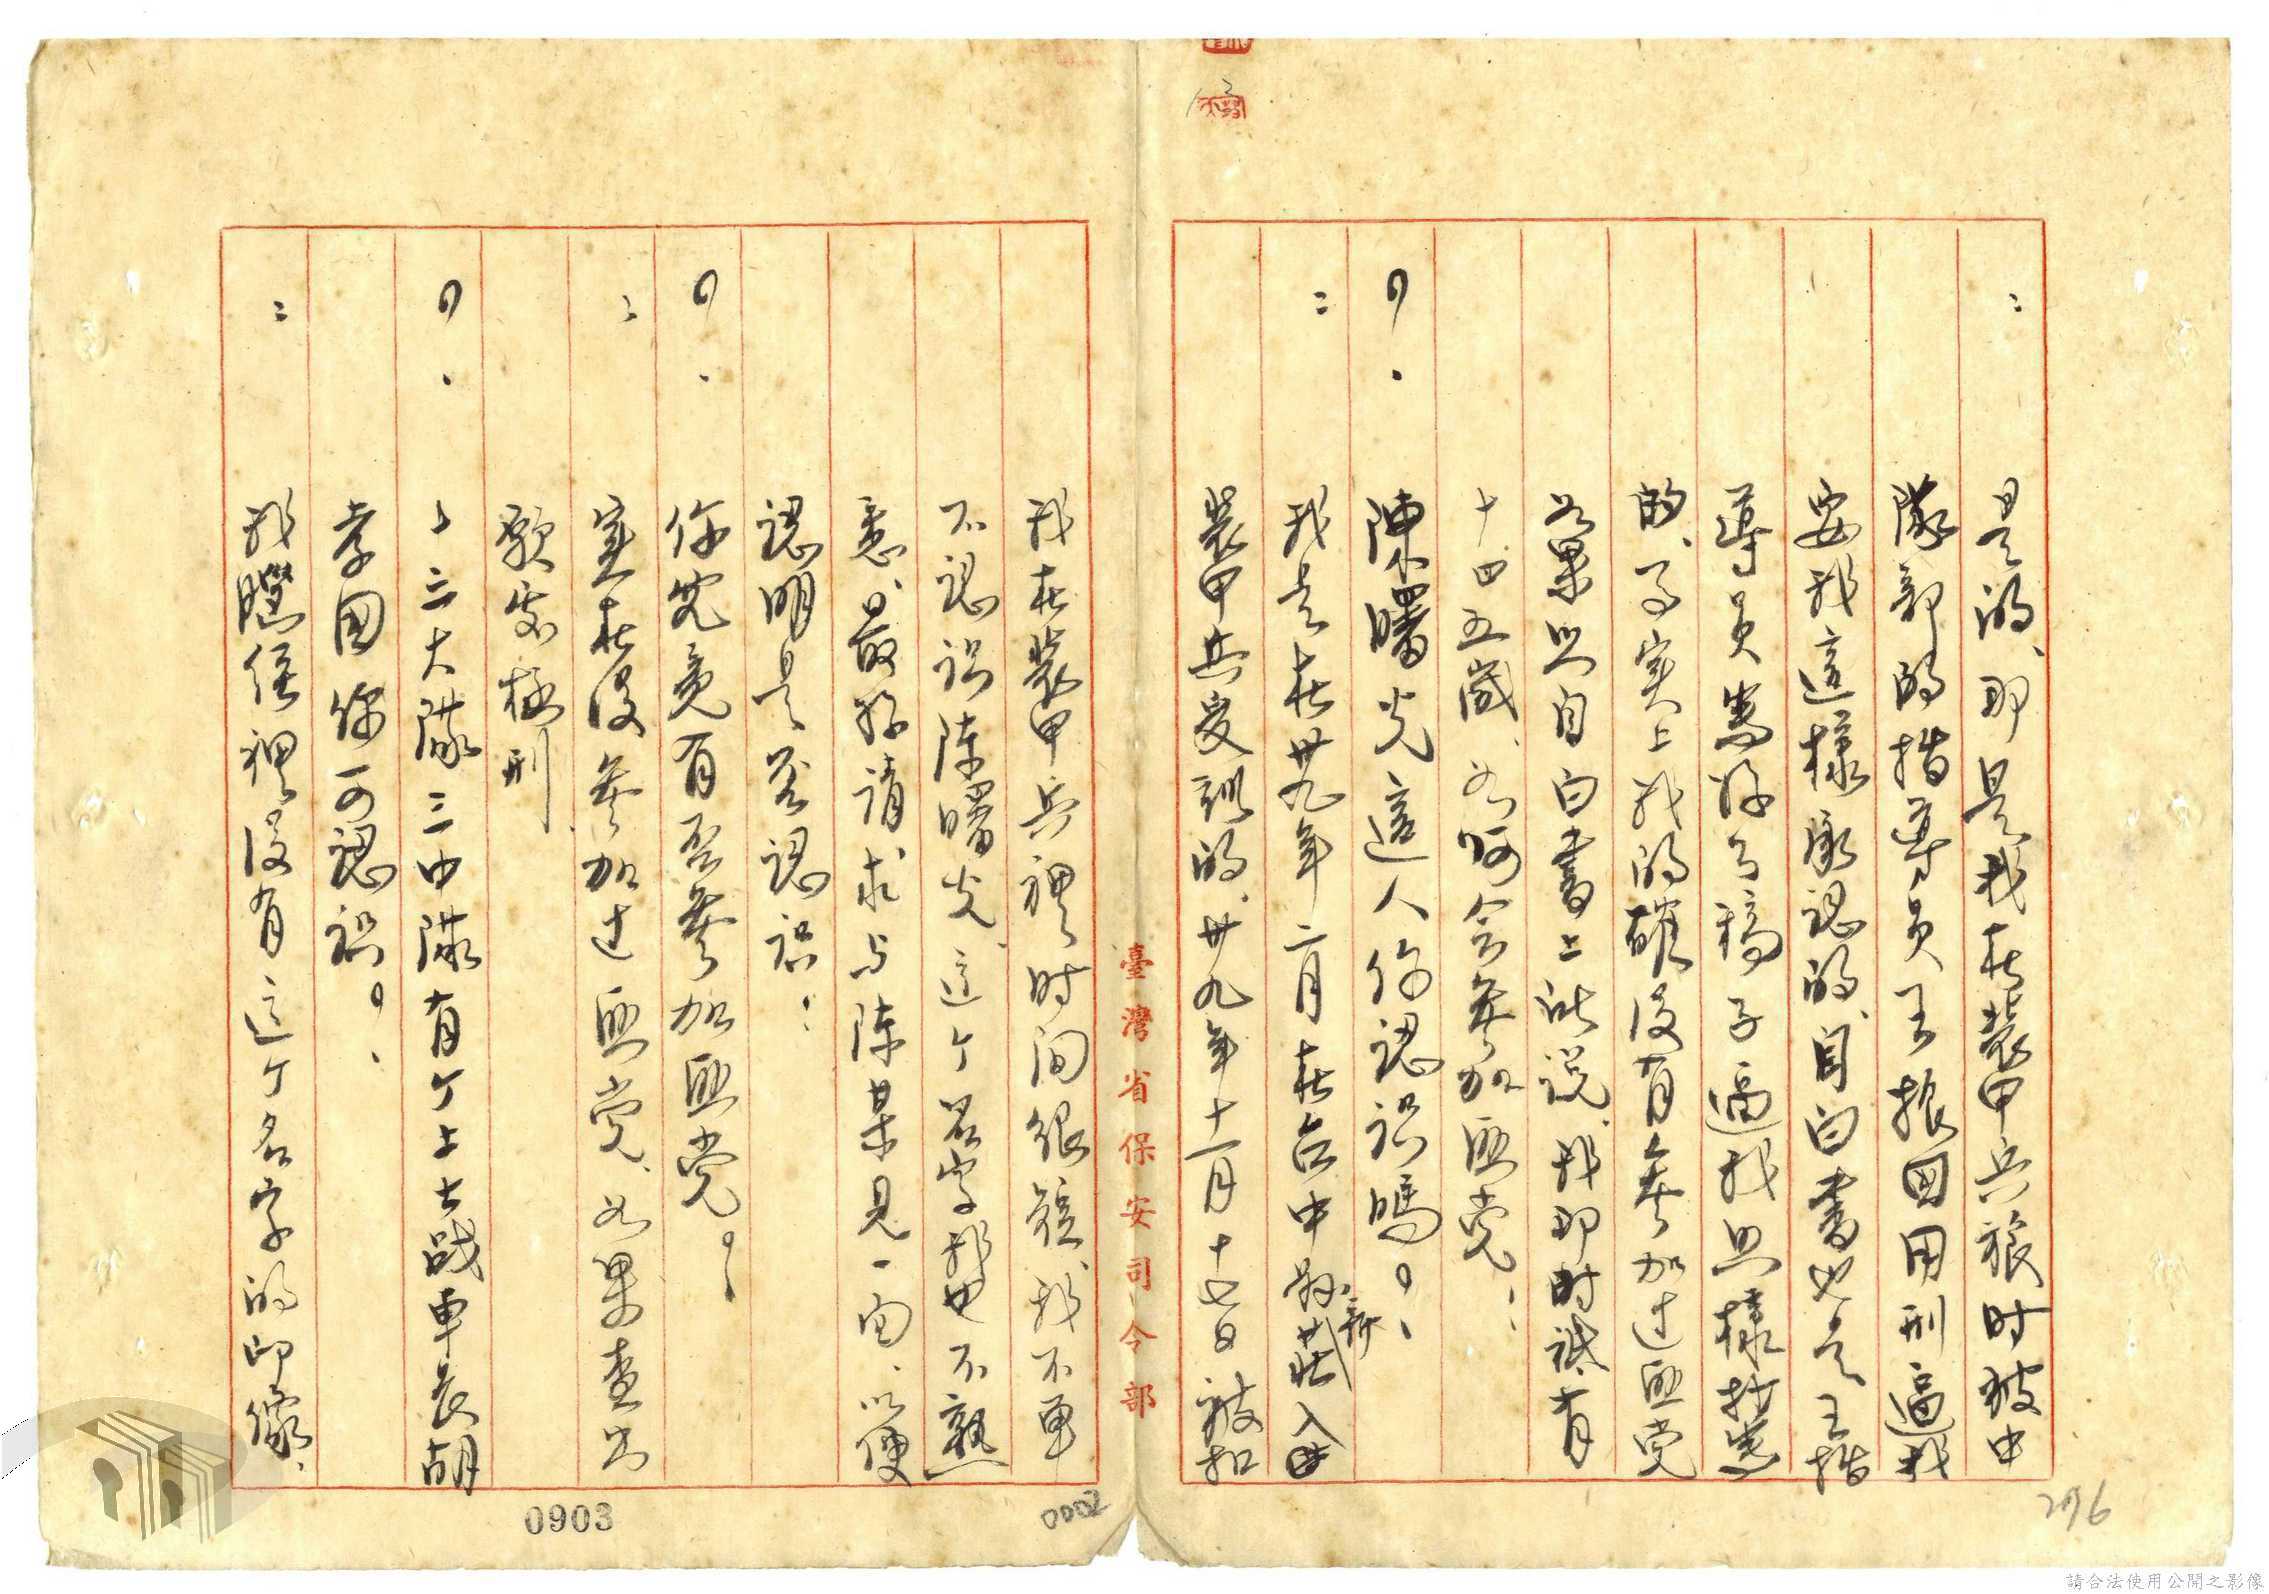 ：是的、那是我在裝甲兵旅時被中
隊部的指導員王振國用刑逼我
要我這樣承認的、自白書也是王指
導員寫好了稿子逼我照樣抄寫
的、事实上我的確沒有參加过匪党
如果照自白書上所說、我那時祇有
十四五歲、如何会參加匪党：
？．陳曙光這人你認识嗎？．
：我是在卅九年二月在台中縣新莊入
裝甲兵受訓的、卅九年十一月十七日被扣
臺灣省保安司令部
我在裝甲兵裡时间很短、我不單
不認识陳曙光、这个名字我也不熟
悉、最好請求与陳某見一面、以便
認明是否認识：
？．你究竟有否參加匪党？．
：实在沒參加过匪党、如果查出
願受極刑
？．、三大隊三中隊有个上士战車長胡
孝国你可認识？．
：我腦筋裡沒有这个名字的印像、
0903
0002
296
請合法使用公開之影像